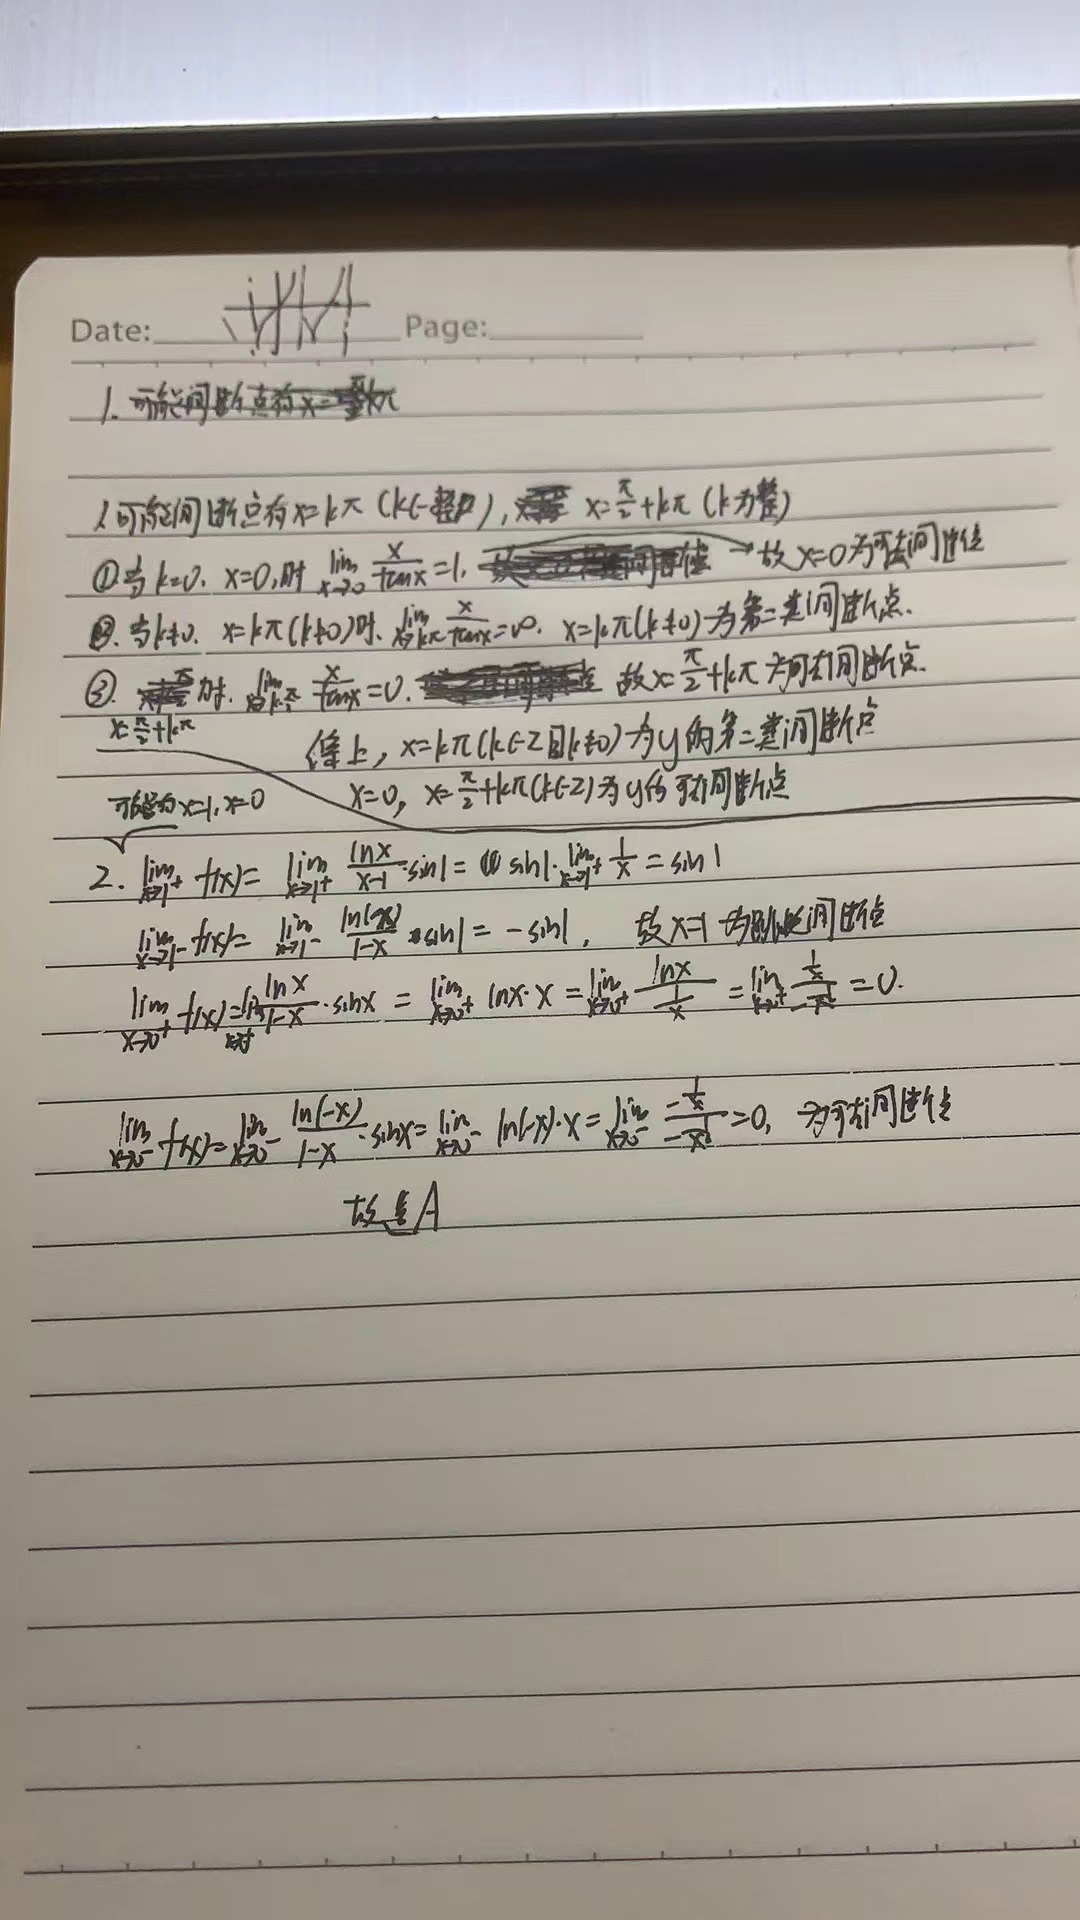 Date: Page:
1. 可能间断点有x=
1.可能间断点有x=kπ (k∈整数), x=π/2+kπ (k为整)
①.当k=0. x=0,时 lim x→0 x/tanx=1, 故x=0为可去间断点
②. 当k≠0. x=kπ(k≠0)时. lim x→kπ x/tanx=∞. x=kπ(k≠0)为第二类间断点.
③. x=π/2+kπ 时. lim x/tanx=0. 故x=π/2+kπ为可去间断点.
综上, x=kπ(k∈Z且k≠0)为y的第二类间断点
x=0, x=π/2+kπ(k∈Z)为y的可去间断点
可能为x=1, x=0
2. lim x→1⁺ f(x)= lim x→1⁺ lnx/x-1 ·sin1= sin1· lim x→1⁺ 1/x = sin1
lim x→1⁻ f(x)= lim x→1⁻ /1-x sin1 = -sin1, 故x=1为跳跃间断点
lim x→0⁺ f(x)=lim lnx/1-x ·sinx = lim x→0⁺ lnx·x = lim x→0⁺ lnx/1/x = lim x→0⁺ 1/x/-1/x² =0.
lim x→0⁻ f(x)= lim x→0⁻ ln(-x)/1-x ·sinx= lim x→0⁻ ln(-x)·x = lim x→0⁻ =0, 为可去间断点
故选A